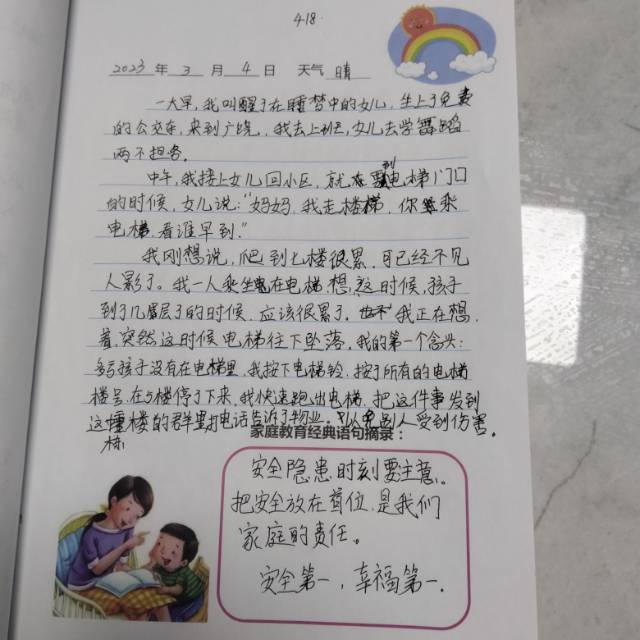 418.
2023 年 3 月 4 日 天气 晴
一大早,我叫醒了在睡梦中的女儿,坐上了免费
的公交车,来到广饶,我去上班,女儿去学舞蹈
两不担务。
中午,我接上女儿回小区,就在要到电梯门口
的时候,女儿说:“妈妈,我走楼梯,你乘
电梯,看谁早到.”
我刚想说,爬到七楼很累,可已经不见
人影了。我一人乘坐在电梯想,这时候,孩子
到了几层了的时候,应该很累了,我正在想
着,突然这时候电梯往下坠落,我的第一个念头:
多亏孩子没有在电梯里,我按下电梯铃,按了所有的电梯
楼号,在5楼停了下来,我快速跑出电梯,把这件事发到
这幢楼的群里,打电话告诉了物业,以免别人受到伤害。
栋
家庭教育经典语句摘录:
安全隐患时刻要主意。
把安全放在首位,是我们
家庭的责任。
安全第一,幸福第一.